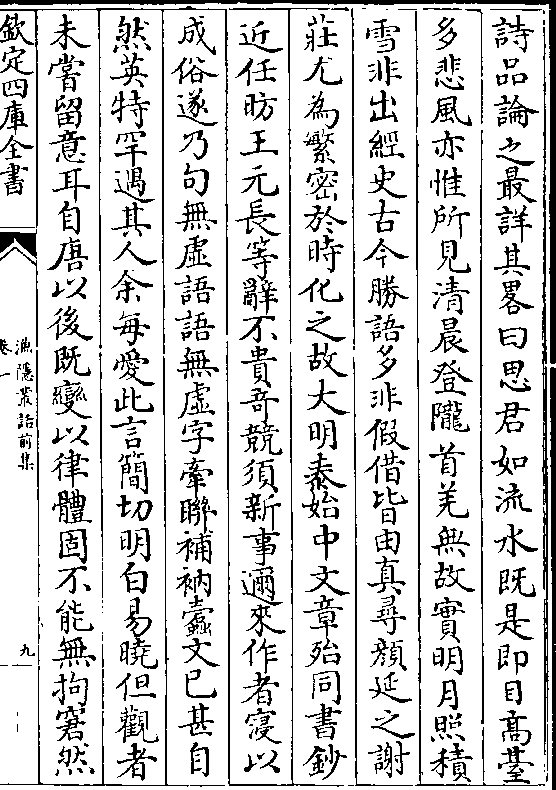 詩品論之最詳其畧曰思君如流水既是即目髙䑓
多悲風亦惟所見清晨登隴首羌無故實明月照積
雪非出經史古今勝語多非假借皆由真尋顔延之謝
莊尤為繁密於時化之故大明泰始中文章殆同書鈔
近任昉王元長等辭不貴竒競須新事邇來作者寖以
成俗遂乃句無虚語語無虚字牽聯補衲蠧文已甚自
然英特罕遇其人余每愛此言簡切明白易曉但觀者
未嘗留意耳自唐以後既變以律體固不能無拘窘然
欽定四庫全書
漁隠叢話前集
卷一
九